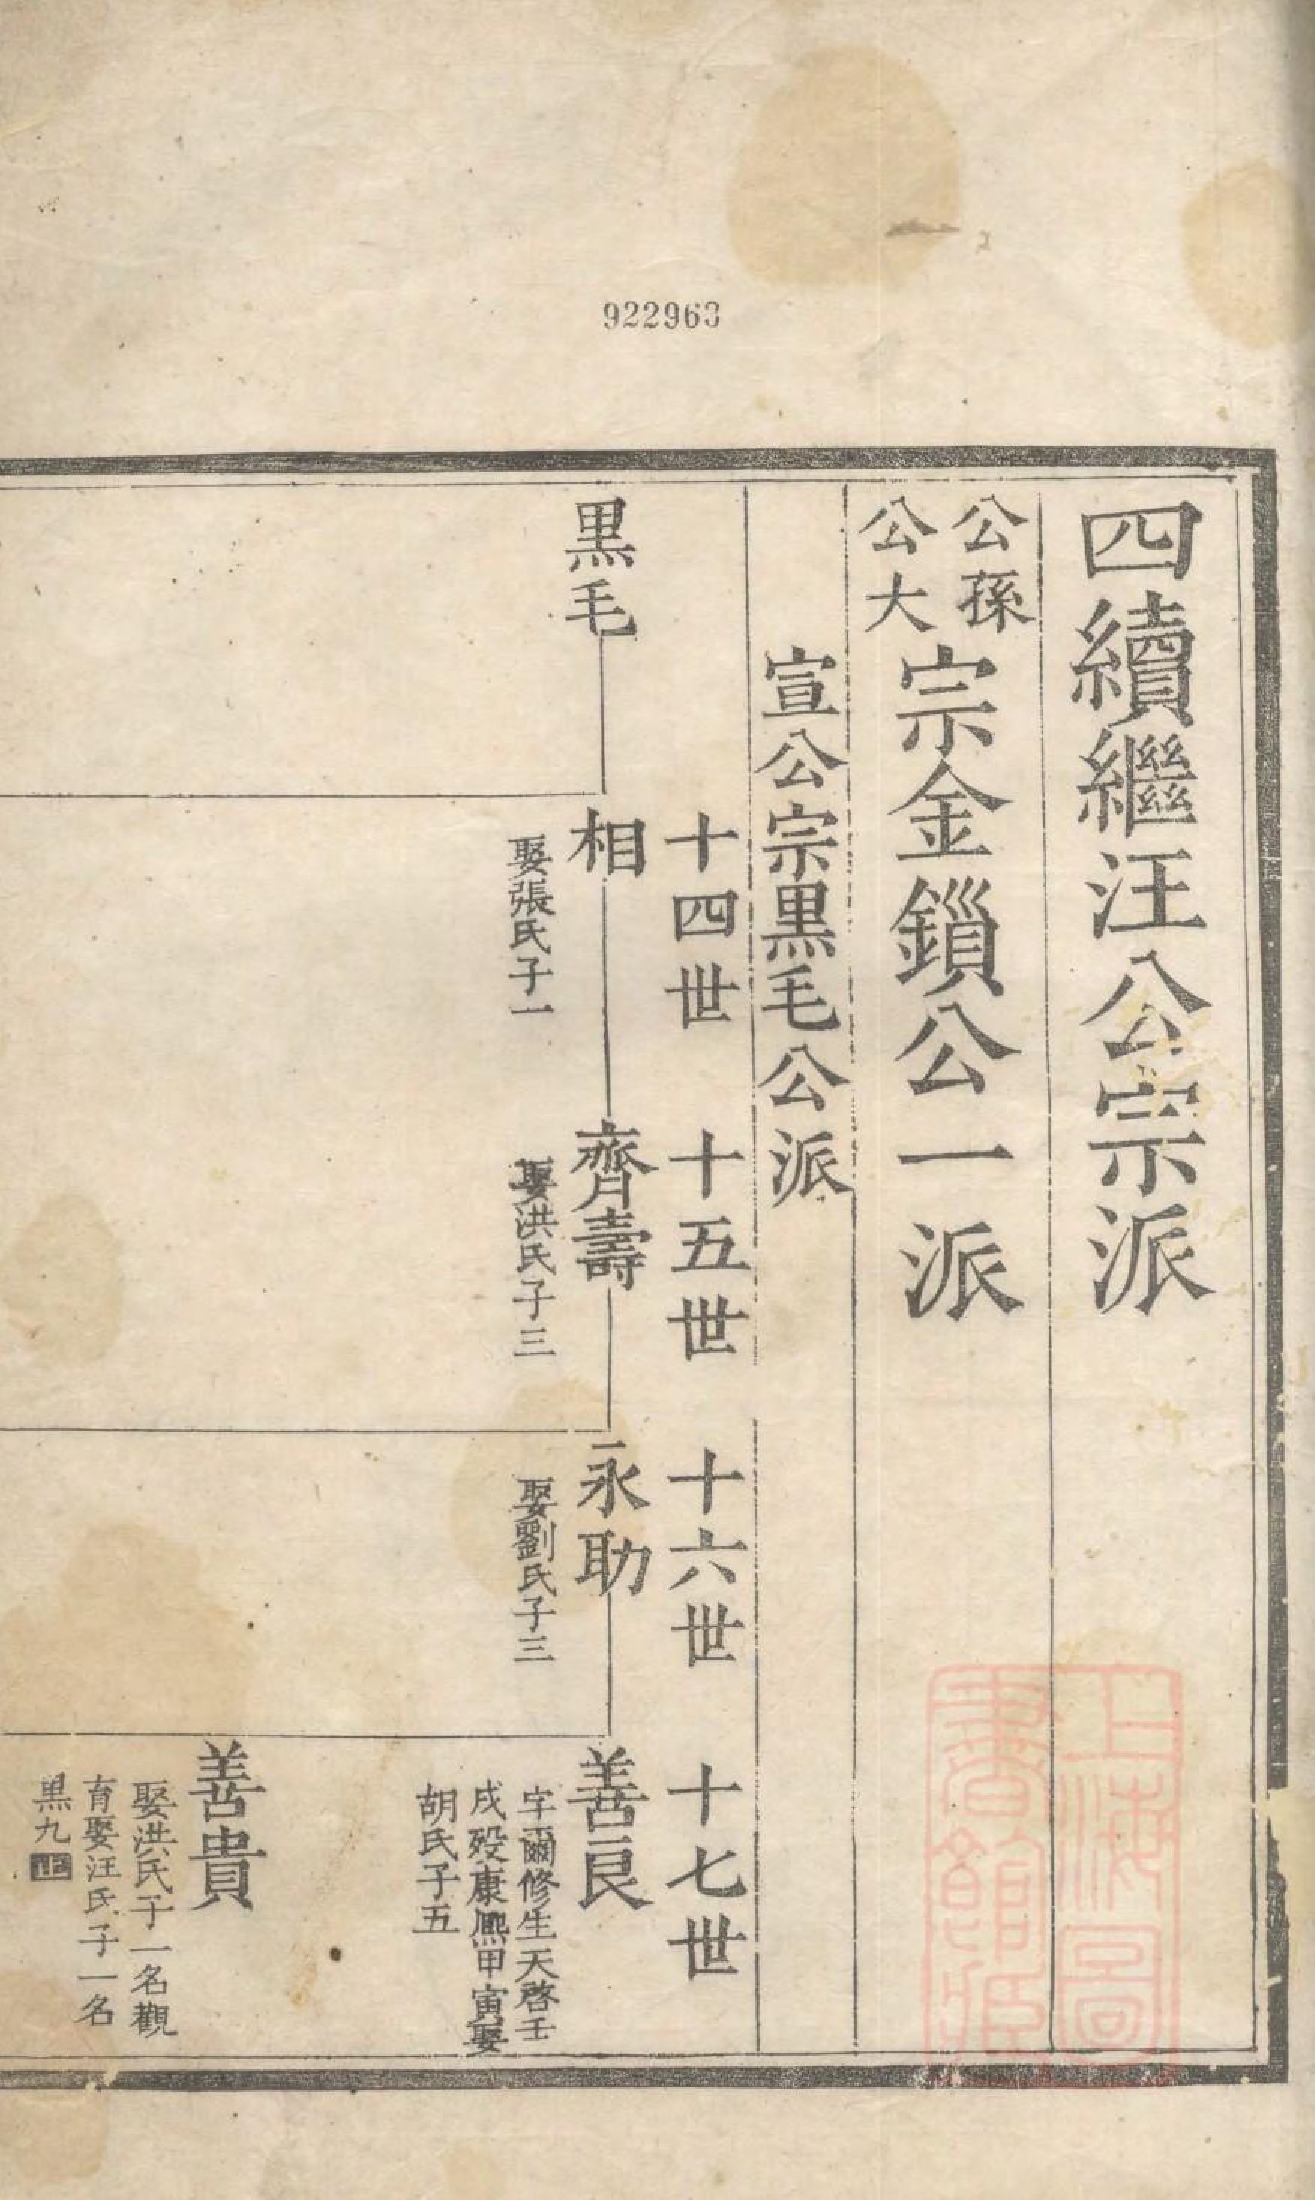 922963
四續繼汪公宗派
公孫
公大
宗金鎖公一派
宣公宗黑毛公派
十四世
十五世
十六世
十七世
黑毛
相
娶張氏子一
齊壽
娶洪氏子三
永助
娶劉氏子三
善良
字爾修生天啓壬
戌歿康熈甲寅娶
胡氏子五
善貴
娶洪氏子一名觀
育娶汪氏子一名
黑九止
上海圖
書館藏